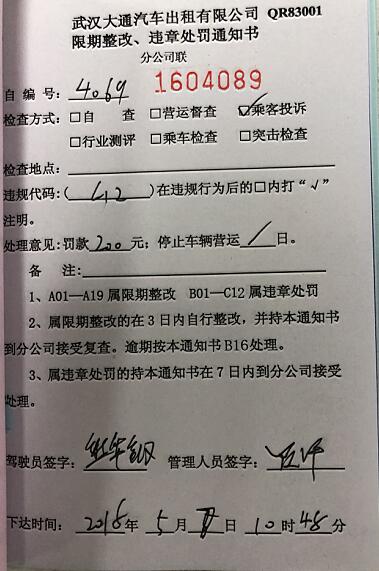 武汉大通汽车出租有限公司 QR83001
限期整改、违章处罚通知书
分公司联
自编号: 4069 1604089
检查方式:□自 查 □营运督查 ☑乘客投诉
□行业测评 □乘车检查 □突击检查
检查地点:
违规代码:( C12 )在违规行为后的□内打“√”
注明。
处理意见:罚款200元;停止车辆营运/日。
备 注:
1、A01—A19属限期整改 B01—C12属违章处罚
2、属限期整改的在3日内自行整改,并持本通知书
到分公司接受复查。逾期按本通知书B16处理。
3、属违章处罚的持本通知书在7日内到分公司接受
处理。
驾驶员签字: 管理人员签字:
下达时间: 2018年 5月 日 10时48分